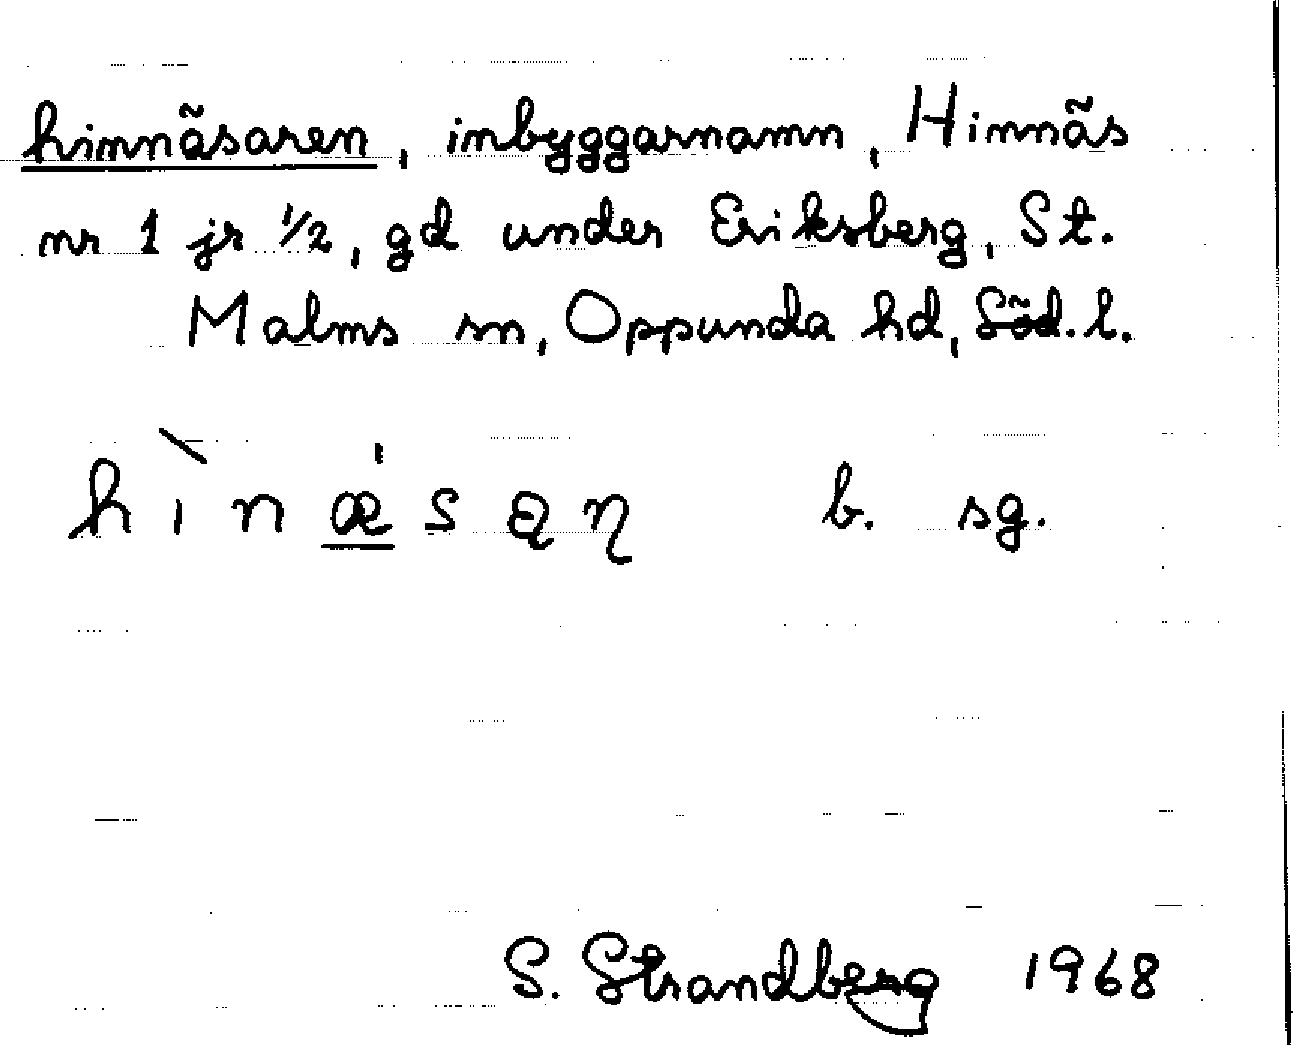 hinnäsaren, inbyggarnamn, Hinnäs
nr 1 jr 1/2, gd under Eriksberg, St.
Malms sn, Oppunda hd, Söd. l.
b. sg.
S. Strandberg 1968